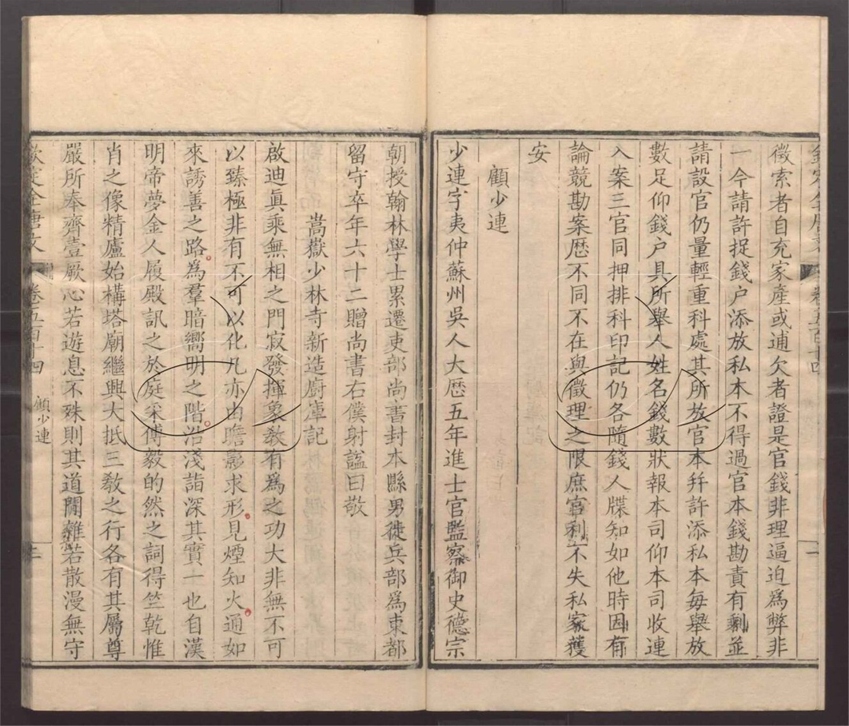 徵索者自充家產或逋欠者證是官錢非理逼迫爲弊非
一今請許捉錢戶添放私本不得過官本錢勘責有剩並
請設官仍量輕重科處其所放官本幷許添私本每舉放
數足仰錢戶具所舉人姓名錢數狀報本司仰本司收連
入案三官同押排科印記仍各隨錢人牒知如他時因有
論競勘案歷不同不在與徵理之限庶官利不失私家獲
安
顧少連
少連字夷仲蘇州吳人大歷五年進士官監察御史德宗
朝授翰林學士累遷吏部尚書封本縣男徙兵部爲東都
留守卒年六十二贈尚書右僕射諡曰敬
嵩嶽少林寺新造廚庫記
啟迪眞乘無相之門寂發揮象敎有爲之功大非無不可
以臻極非有不可以化凡亦由瞻影求形見煙知火通如
來誘善之路爲羣暗嚮明之階沿淺詣深其實一也自漢
明帝夢金人履殿訊之於庭采傅毅的然之詞得竺乾惟
肖之像精廬始構塔廟繼興大抵三敎之行各有其屬尊
嚴所奉齊壹厥心若遊息不殊則其道闡雜若散漫無守
欽定全唐文
卷五百十四
顧少連